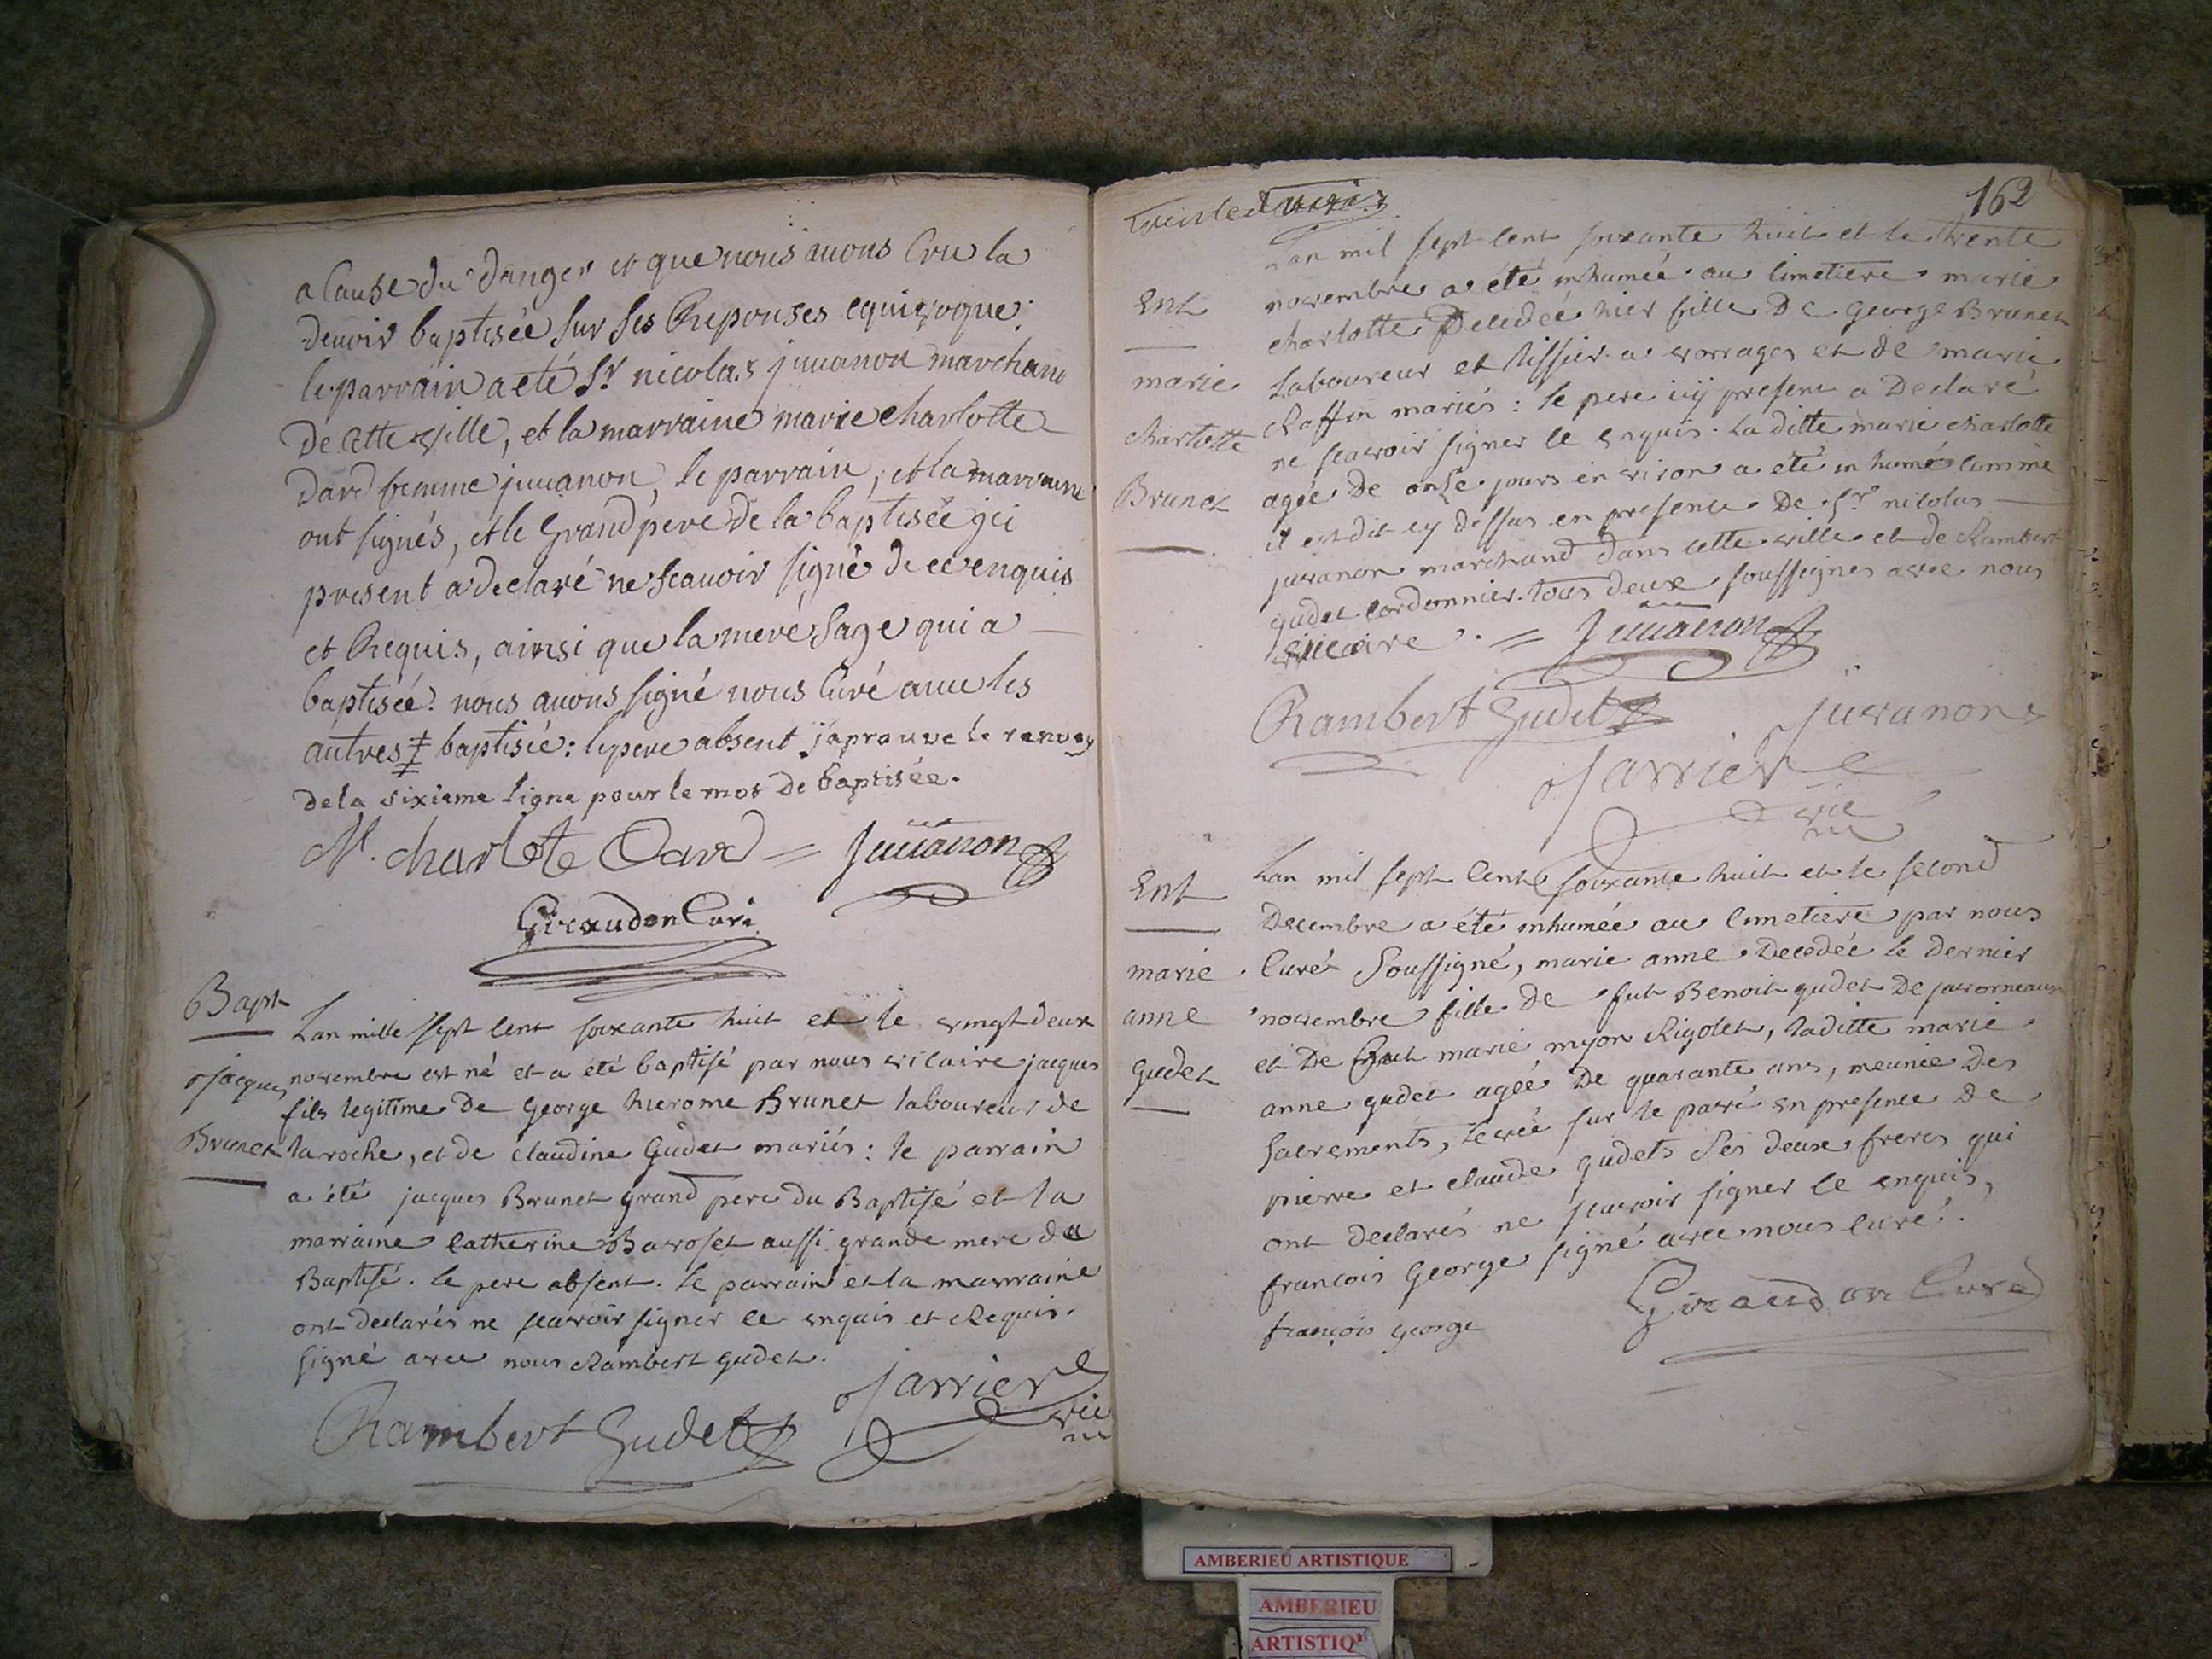 a Cause du danger et que nous auons Cru la
deuoir baptisée sur ses Reponses equivoque.
le parrain a eté Sr nicolas juuanon marchand
de cette ville, et la marraine marie charlotte
dard femme juuanon, le parrain, et la marraine
ont signés, et le Grand pere de la baptisée ici
present a declaré ne scauoir signé de ce enquis
et Requis, ainsi que la mere sage qui a
baptiséé. nous auons signé nous Curé auec les
autres ‡ baptisée: le pere absent j'aprouve le renvoy
de la sixieme ligne pour le mot de baptisée.
M. charlote Dard = Juuanon
Giraudon Curé
Bapt
Jacques
Brunet
Lan mille sept cent soixante huit et le vingt deux
novembre est né et a été baptisé par nous vicaire jacques
fils legitime de George hierome Brunet laboureur de
la roche, et de Claudine Gudet mariés: le parrain
a été jacques Brunet grand pere du Baptisé et la
marraine Catherine Bavoset aussi grande mere du
Baptisé. le pere absent. le parrain et la marraine
ont declarés ne scavoir signer ce enquis et Requis.
signé avec nous Rambert gudet.
Rambert Gudet
Jarriere
vic
162
Ent
marie
charlotte
Brunet
Lan mil sept cent soixante huit et le trente
novembre a été inhumée au cimetiere marie
charlotte Decedée hier fille De George Brunet
Laboureur et tissier a vorrages et de marie
Raffin mariés: le pere icy present a Declaré
ne scavoir signer ce enquis. la ditte marie charlotte
agée De onse jours en viron a été in humé comme
il est dit cy dessus en presence De Sr nicolas
juvanon marchand dans cette ville et de Rambert
gudet cordonnier. tous deux soussignes avec nous
vicaire. = Juuanon
Rambert Gudet
juvanon
Jarriere
vic
Ent
marie
anne
Gudet
Lan mil sept Cent soixante huit et le second
Decembre a été inhumée au Cimetiere par nous
Curé Soussigné, marie anne Decedée le dernier
novembre fille de fut Benoit gudet De javorneaux
et De fut marie myon Rigolet, laditte marie
anne gudet agée De quarante ans, meunie des
sacrements, levée sur le pavé en presence de
pierre et claude gudets Ses deux freres qui
ont declarés ne scavoir signer ce enquis,
francois George signé avec nous curé.
françois george
Giraudon Curé
AMBERIEU ARTISTIQUE
AMBERIEU
ARTISTIQ